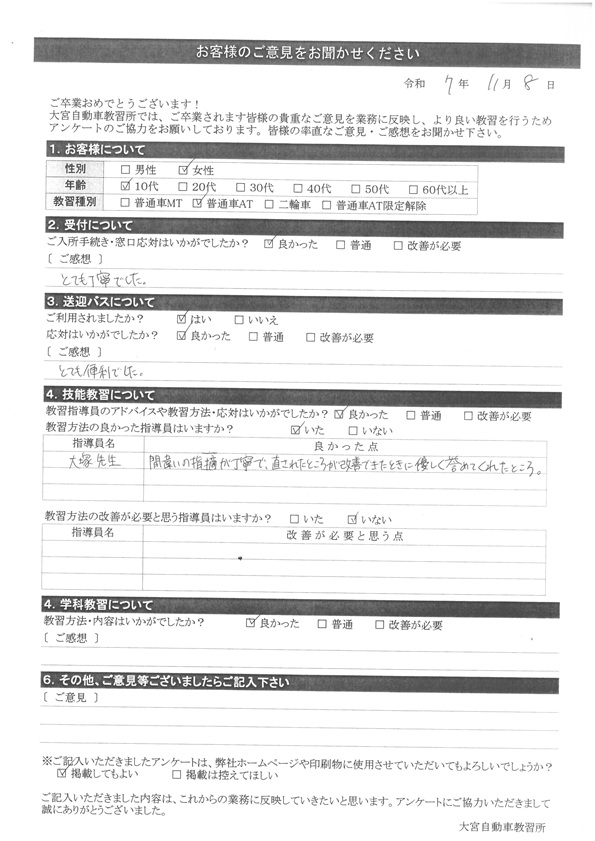 お客様のご意見をお聞かせください
令和 7 年 11 月 8 日
ご卒業おめでとうございます！
大宮自動車教習所では、ご卒業されます皆様の貴重なご意見を業務に反映し、より良い教習を行うため
アンケートのご協力をお願いしております。皆様の率直なご意見・ご感想をお聞かせ下さい。
1. お客様について
性別 □ 男性 ☑ 女性
年齢 ☑ 10代 □ 20代 □ 30代 □ 40代 □ 50代 □ 60代以上
教習種別 □ 普通車MT ☑ 普通車AT □ 二輪車 □ 普通車AT限定解除
2. 受付について
ご入所手続き・窓口応対はいかがでしたか？ ☑ 良かった □ 普通 □ 改善が必要
[ ご感想 ]
とても丁寧でした。
3. 送迎バスについて
ご利用されましたか？ ☑ はい □ いいえ
応対はいかがでしたか？ ☑ 良かった □ 普通 □ 改善が必要
[ ご感想 ]
とても便利でした。
4. 技能教習について
教習指導員のアドバイスや教習方法・応対はいかがでしたか？ ☑ 良かった □ 普通 □ 改善が必要
教習方法の良かった指導員はいますか？ ☑ いた □ いない
指導員名 良かった点
大塚先生 間違いの指摘が丁寧で、直されたところが改善できたときに優しく誉めてくれたところ。
教習方法の改善が必要と思う指導員はいますか？ □ いた ☑ いない
指導員名 改善が必要と思う点
4. 学科教習について
教習方法・内容はいかがでしたか？ ☑ 良かった □ 普通 □ 改善が必要
[ ご感想 ]
6. その他、ご意見等ございましたらご記入下さい
[ ご意見 ]
※ご記入いただきましたアンケートは、弊社ホームページや印刷物に使用させていただいてもよろしいでしょうか？
☑ 掲載してもよい □ 掲載は控えてほしい
ご記入いただきました内容は、これからの業務に反映していきたいと思います。アンケートにご協力いただきまして
誠にありがとうございました。
大宮自動車教習所